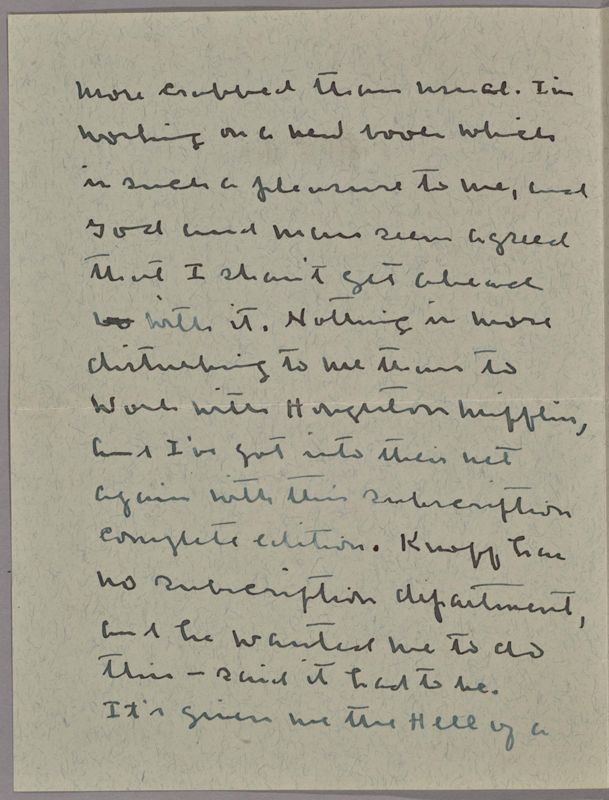 more crabbed than usual. I'm
working on a new book which
is such a pleasure to me, and
God and man seem agreed
that I shan't get ahead
with it. Nothing is more
disturbing to me than to
work with Houghton Mifflin,
and I've got into their net
again with this subscription
complete edition. Knopf has
no subscription department,
and he wanted me to do
this - said it had to be.
It's given me the Hell of a